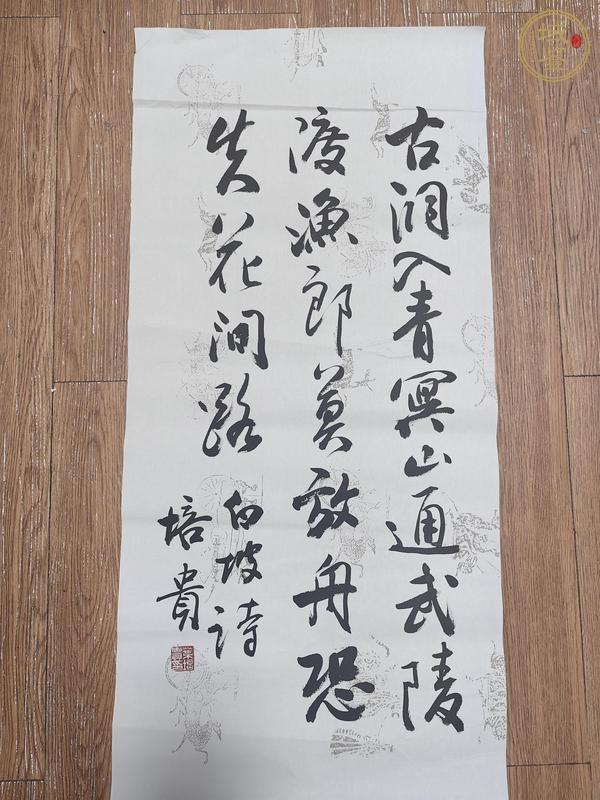 古洞入青冥山通武陵
渡漁郎莫放舟恐
失花间路
白坡诗
培貴